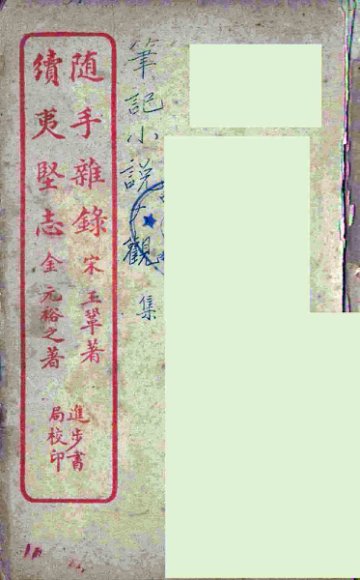 随手雜錄 宋 王鞏著
續夷堅志 金 元裕之著
進步書
局校印
筆記小說大觀 集